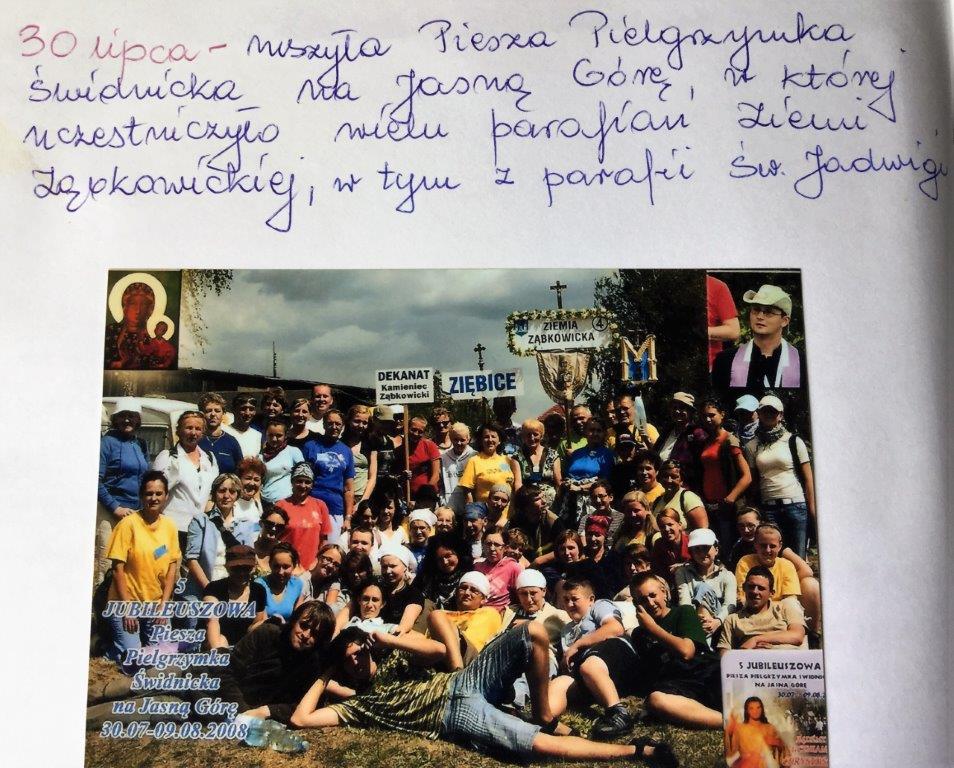 30 lipca - ruszyła Piesza Pielgrzymka
Świdnicka na Jasną Górę, w której
uczestniczyło wielu parafian Ziemi
Ząbkowickiej, w tym z parafii Św. Jadwigi
ZIEMIA
ZĄBKOWICKA
4
DEKANAT
Kamieniec
Ząbkowicki
ZIĘBICE
M
5
JUBILEUSZOWA
Piesza
Pielgrzymka
Świdnicka
na Jasną Górę
30.07-09.08.2008
5 JUBILEUSZOWA
PIESZA PIELGRZYMKA
NA JASNĄ GÓRĘ